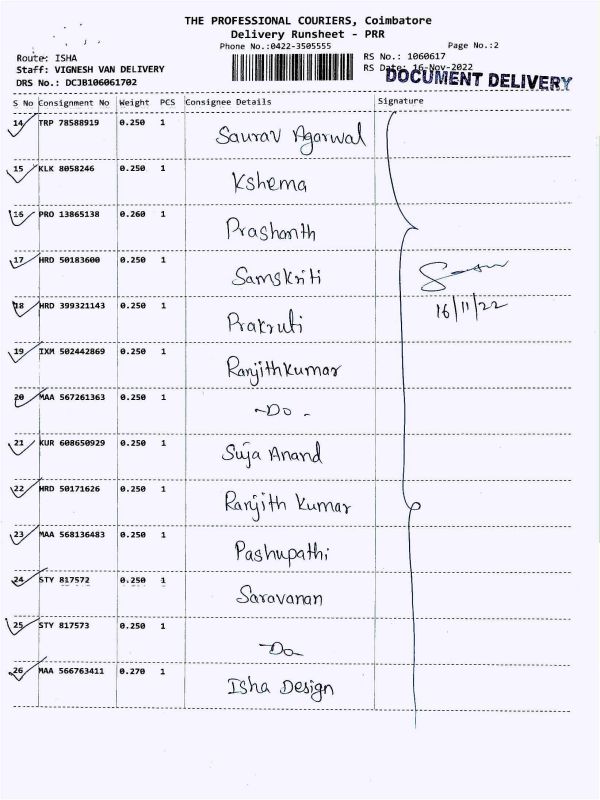 THE PROFESSIONAL COURIERS, Coimbatore
Delivery Runsheet - PRR
Phone No.:0422-3505555
Page No.:2
Route: ISHA
RS No.: 1060617
Staff: VIGNESH VAN DELIVERY
RS Date: 16-Nov-2022
DRS No.: DCJB106061702
DOCUMENT DELIVERY
S No Consignment No Weight PCS Consignee Details Signature
14 TRP 78588919 0.250 1 Saurav Agarwal
15 KLK 8058246 0.250 1 Kshema
16 PRO 13865138 0.260 1 Prashanth
17 HRD 50183600 0.250 1 Samskriti
18 HRD 399321143 0.250 1 Prakruti
16/11/22
19 IXM 502442869 0.250 1 Ranjithkumar
20 MAA 567261363 0.250 1 -Do-
21 KUR 608650929 0.250 1 Suja Anand
22 HRD 50171626 0.250 1 Ranjith Kumar
23 MAA 568136483 0.250 1 Pashupathi
24 STY 817572 0.250 1 Saravanan
25 STY 817573 0.250 1 Do
26 MAA 566763411 0.270 1 Isha Design